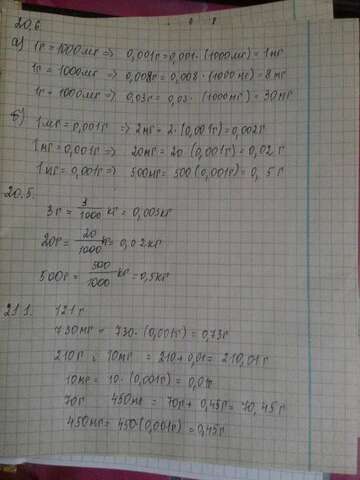 20.6.
а) 1г = 1000мг => 0,001г = 0,001 · (1000мг) = 1мг
1г = 1000мг => 0,008г = 0,008 · (1000мг) = 8мг
1г = 1000мг => 0,03г = 0,03 · (1000мг) = 30мг
б) 1мг = 0,001г => 2мг = 2 · (0,001г) = 0,002г
1мг = 0,001г => 20мг = 20 (0,001г) = 0,02г
1мг = 0,001г => 500мг = 500 (0,001г) = 0,5г
20.5.
3г = 3/1000 кг = 0,003кг
20г = 20/1000 кг = 0,02кг
500г = 500/1000 кг = 0,5кг
21 1. 121г
730мг = 730 · (0,001г) = 0,73г
210г 10мг = 210 + 0,01 = 210,01г
10мг = 10 · (0,001г) = 0,01г
70г 450мг = 70г + 0,45г = 70,45г
450мг = 450 · (0,001г) = 0,45г